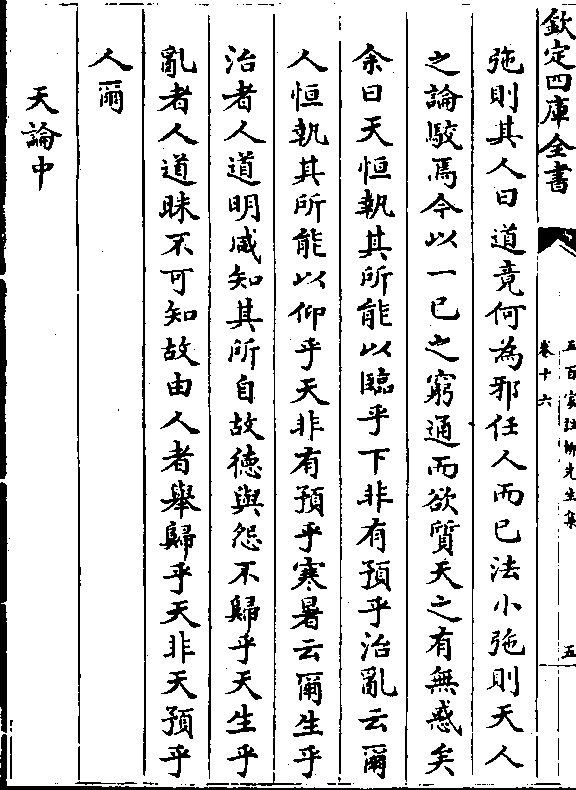 欽定四庫全書
五百家註柳先生集
卷十六
五
弛則其人曰道竟何為邪任人而已法小弛則天人
之論駮焉今以一己之窮通而欲質天之有無惑矣
余曰天恒執其所能以臨乎下非有預乎治亂云爾
人恒執其所能以仰乎天非有預乎寒暑云爾生乎
治者人道明咸知其所自故德與怨不歸乎天生乎
亂者人道昧不可知故由人者舉歸乎天非天預乎
人爾
天論中